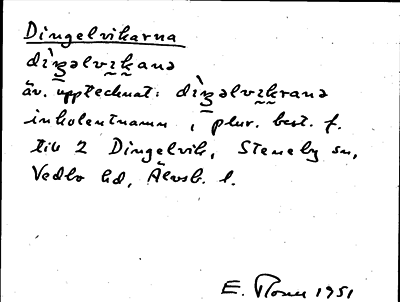 Dingelvikarna
dìŋəlvɪkanə
äv. upptecknat: dìŋəlvɪkranə
inkolentnamn, plur. best. f.
till 2 Dingelvik, Steneby sn,
Vedbo hd, Älvsb. l.
E. 1951